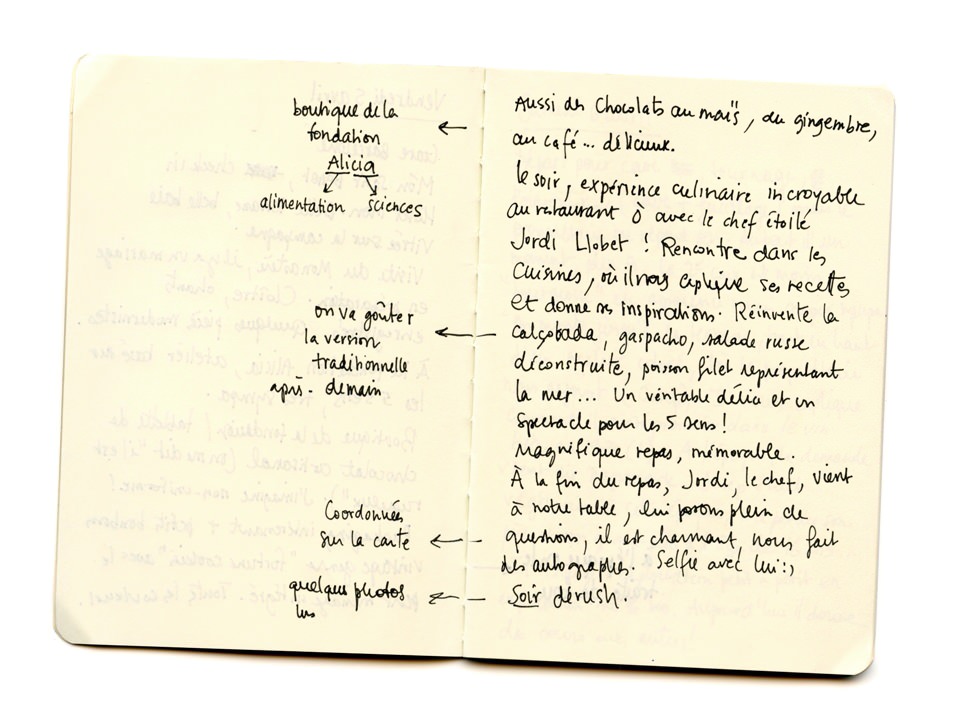 boutique de la
fondation
Alicia
alimentation sciences
on va goûter
la version
traditionnelle
après-demain
Coordonnées
sur la carte
quelques photos
Aussi des chocolats au maïs, au gingembre,
au café... délicieux.
Le soir, expérience culinaire incroyable
au restaurant Ò avec le chef étoilé
Jordi Llobet ! Rencontre dans les
cuisines, où il nous explique ses recettes
et donne ses inspirations. Réinvente la
calçotada, gaspacho, salade russe
déconstruite, poisson filet représentant
la mer... Un véritable délice et un
spectacle pour les 5 sens !
Magnifique repas, mémorable.
À la fin du repas, Jordi, le chef, vient
à notre table, lui posons plein de
questions, il est charmant, nous fait
des autographes. Selfie avec lui :)
Soir dérush.